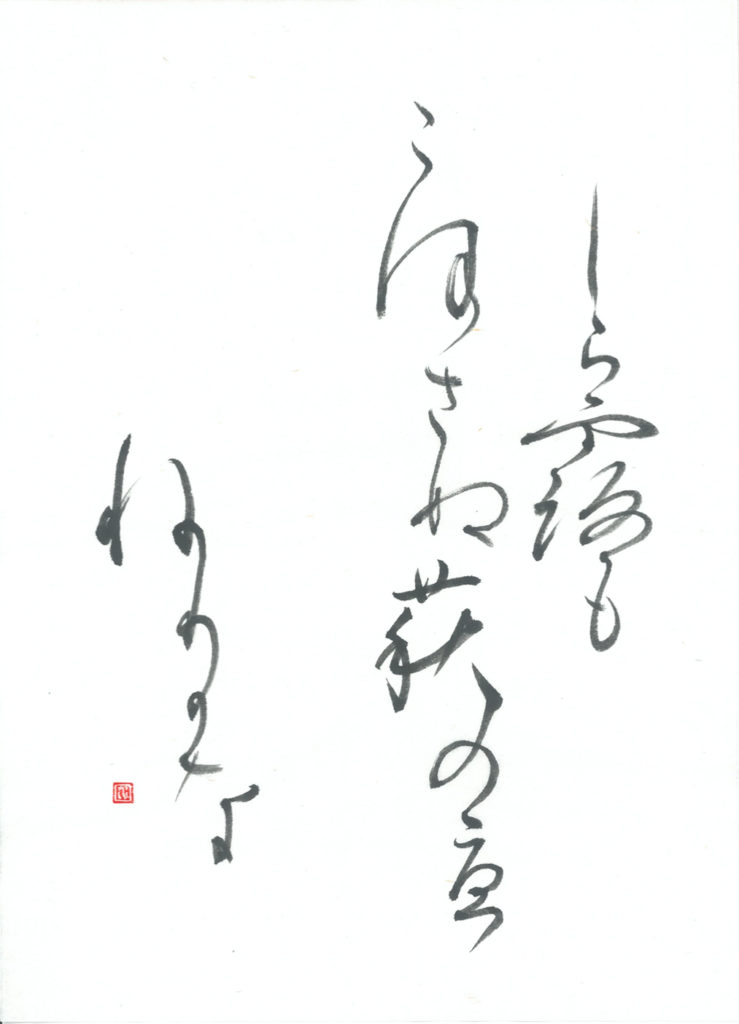 しら露も
こほさぬ萩のう
ねりかな